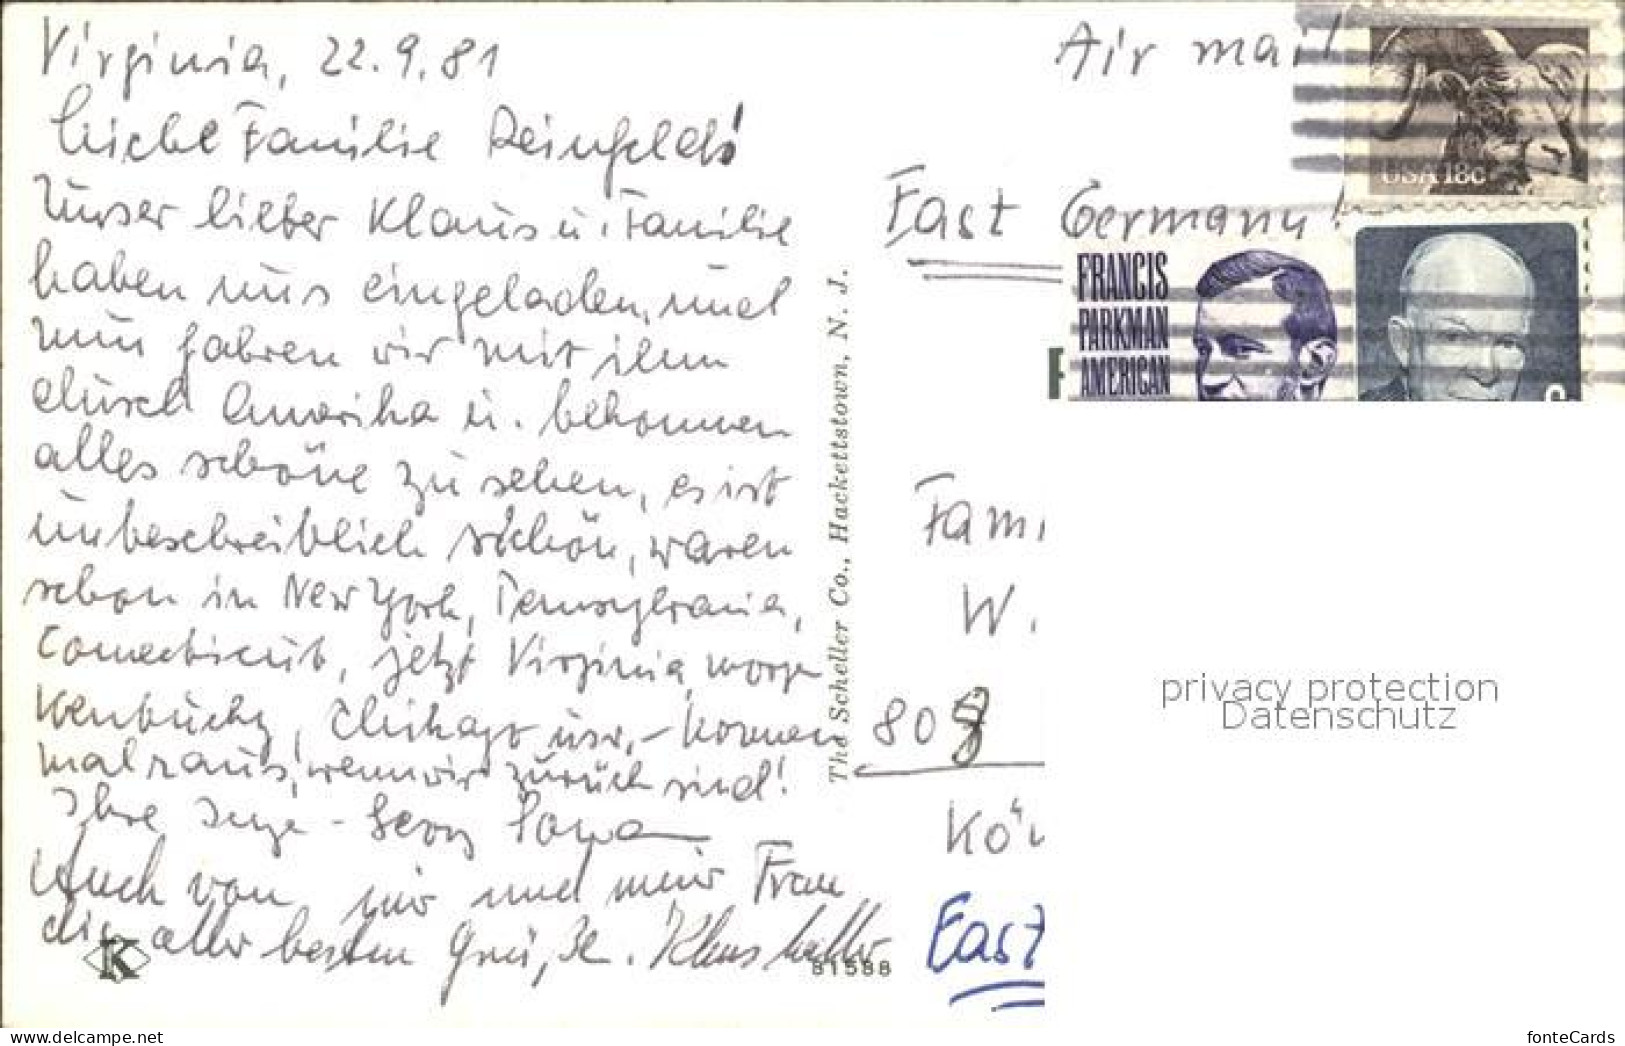 Virginia, 22.9.81
Liebe Familie Reinfeld!
Unser lieber Klaus u. Familie
haben uns eingeladen, und
nun fahren wir mit ihm
durch Amerika u. bekommen
alles schöne zu sehen, es ist
unbeschreiblich schön, waren
schon in New York, Pennsylvania,
Connecticut, jetzt Virginia, morg.
Kentucky, Chikago usw, - kommen
mal raus, wenn wir zurück sind!
Ihre Inge - Georg
Auch von mir und meiner Frau
die aller besten Grüße. Klaus
K
81588
The Scheller Co., Hackettstown, N. J.
Air mail
USA 18c
East Germany!
FRANCIS
PARKMAN
AMERICAN
Fami
W.
80
Kö
East
privacy protection
Datenschutz
www.delcampe.net
fonteCards